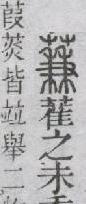 蒹萑之未
葭菼皆竝舉二